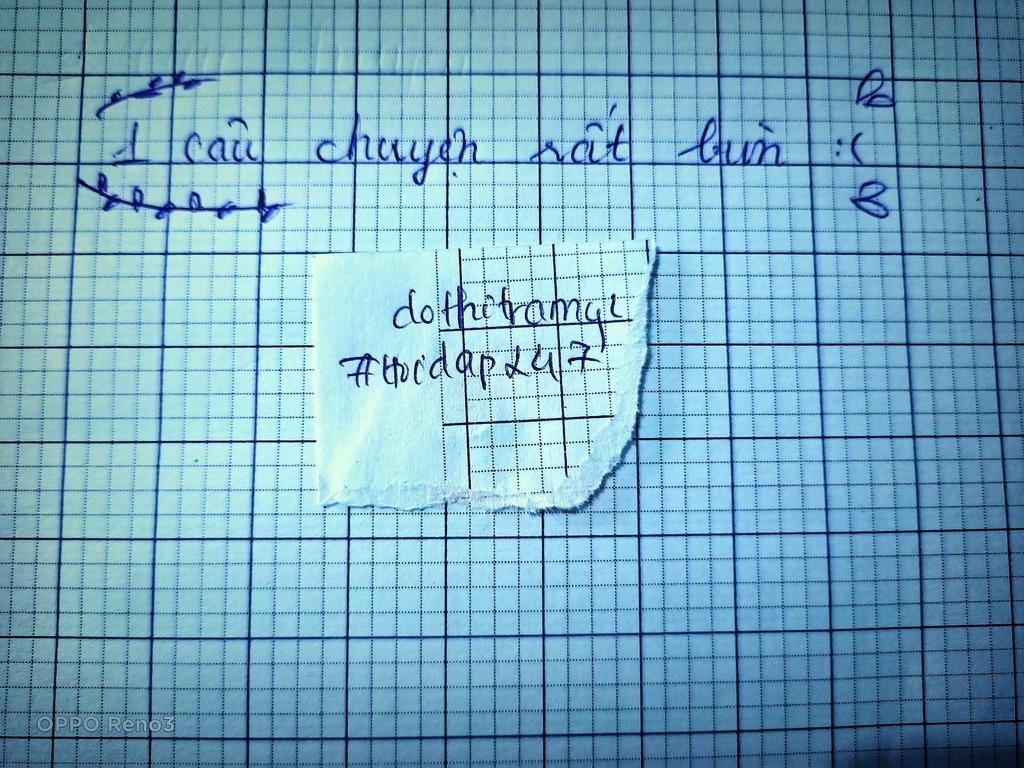 1 câu chuyện rất bùn :(
dothitramyi
#Hoidap247
OPPO Reno3